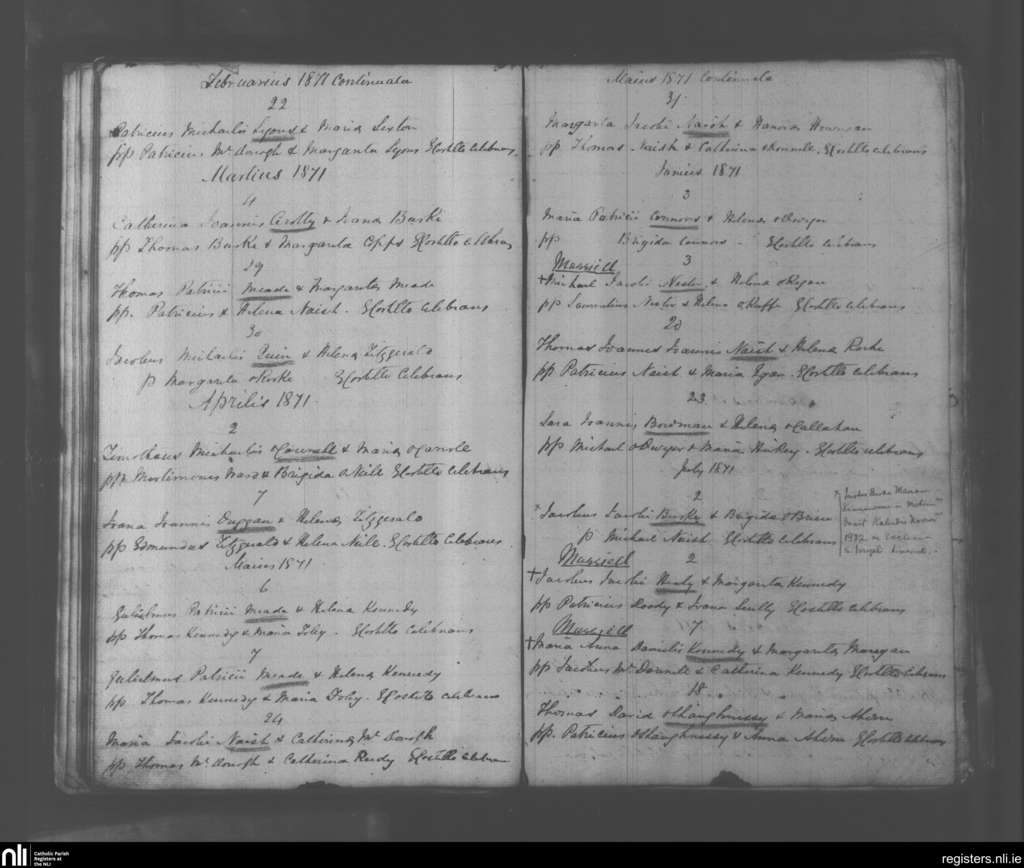 Februarius 1871 Continuata
22
Patricius Michaelis Lyons & Maria Sexton
pp Patricius Mc Donogh & Margarita Lyons E Costello Celebrans
Martius 1871
4
Catherina Joannis Crotty & Joana Burke
pp Thomas Burke & Margarita E Costello Celebrans
29
Thomas Patricii Meade & Margarita Meade
pp. Patricius & Helena Naish. E Costello Celebrans
30
Jacobus Michaelis Quin & Helena Fitzgerald
p Margarita ORorke E Costello Celebrans
Aprilis 1871.
2
Timotheus Michaelis & Maria
pp. & Brigida ONeile E Costello Celebrans
7
Joana Joannis Duggan & Helena Fitzgerald
pp Edmundus Fitzgerald & Helena Neile. E Costello Celebrans
Maius 1871
6
Gulielmus Patricii Meade & Helena Kennedy
pp Thomas Kennedy & Maria Foley. E Costello Celebrans
7
Gulielmus Patricii Meade & Helena Kennedy
pp Thomas Kennedy & Maria E Costello Celebrans
24
Maria Jacobi Naish & Catherina Mc Donogh
pp Thomas Mc Donogh & Catherina E Costello Celebrans
Maius 1871 Continuata
31
Margarita Jacobi Naish & Hanora
pp. Thomas Naish & Catherina E Costello Celebrans
Junius 1871
3
Maria Patricii Connors & Helena ODwyer
pp Brigida Connors - E Costello Celebrans
Married 3
+ Michael Jacobi & Helena ORyan
pp & Helena E Costello Celebrans
20
Thomas Joannes Joannis Naish & Helena Rorke
pp Patricius Naish & Maria Ryan. E Costello Celebrans
23
Sara Joannis Bowman & Helena OCallahan
pp Michael ODwyer & Maria Hickey. E Costello Celebrans
July 1871
2
Jacobus Jacobi Burke & Brigida OBrien
p Michael Naish E Costello Celebrans
Married 2
+ Jacobus Jacobi Healy & Margarita Kennedy
pp Patricius Doody & Joana Scully E Costello Celebrans
Married 7
+ Maria Anna Danielis Kennedy & Margarita
pp Jacobus Mc Donnell & Catherina Kennedy E Costello Celebrans
18
Thomas David OShaughnessy & Maria Ahern
pp. Patricius OShaughnessy & Anna Ahern E Costello Celebrans
nli
Catholic Parish
Registers at
the NLI
registers.nli.ie